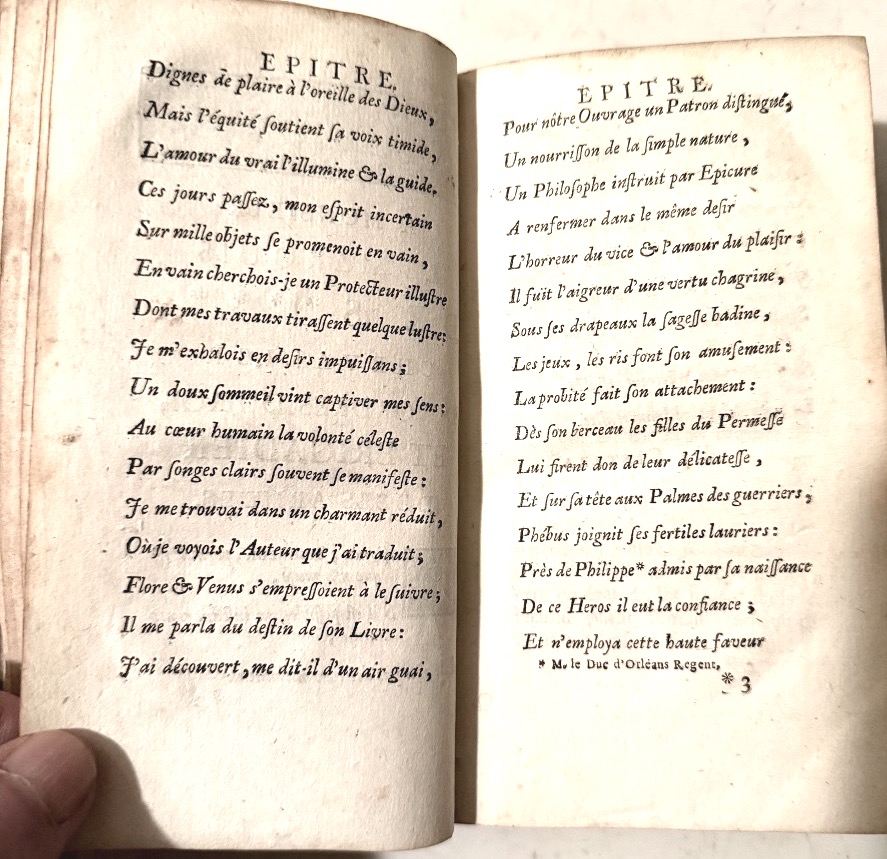 EPITRE.
Dignes de plaire à l'oreille des Dieux,
Mais l'équité ſoutient ſa voix timide,
L'amour du vrai l'illumine & la guide.
Ces jours paſſez, mon eſprit incertain
Sur mille objets ſe promenoit en vain,
En vain cherchois-je un Protecteur illuſtre
Dont mes travaux tiraſſent quelque luſtre:
Je m'exhalois en deſirs impuiſſans;
Un doux ſommeil vint captiver mes ſens:
Au cœur humain la volonté céleſte
Par ſonges clairs ſouvent ſe manifeſte:
Je me trouvai dans un charmant réduit,
Où je voyois l'Auteur que j'ai traduit;
Flore & Venus s'empreſſoient à le ſuivre;
Il me parla du deſtin de ſon Livre:
J'ai découvert, me dit-il d'un air guai,
EPITRE.
Pour nôtre Ouvrage un Patron diſtingué,
Un nourriſſon de la ſimple nature,
Un Philoſophe inſtruit par Epicure
A renfermer dans le même deſir
L'horreur du vice & l'amour du plaiſir:
Il fuït l'aigreur d'une vertu chagrine,
Sous ſes drapeaux la ſageſſe badine,
Les jeux, les ris font ſon amuſement:
La probité fait ſon attachement:
Dès ſon berceau les filles du Permeſſe
Lui firent don de leur délicateſſe,
Et ſur ſa tête aux Palmes des guerriers,
Phébus joignit ſes fertiles lauriers:
Près de Philippe* admis par ſa naiſſance
De ce Heros il eut la confiance;
Et n'employa cette haute faveur
* M. le Duc d'Orléans Regent,
* 3